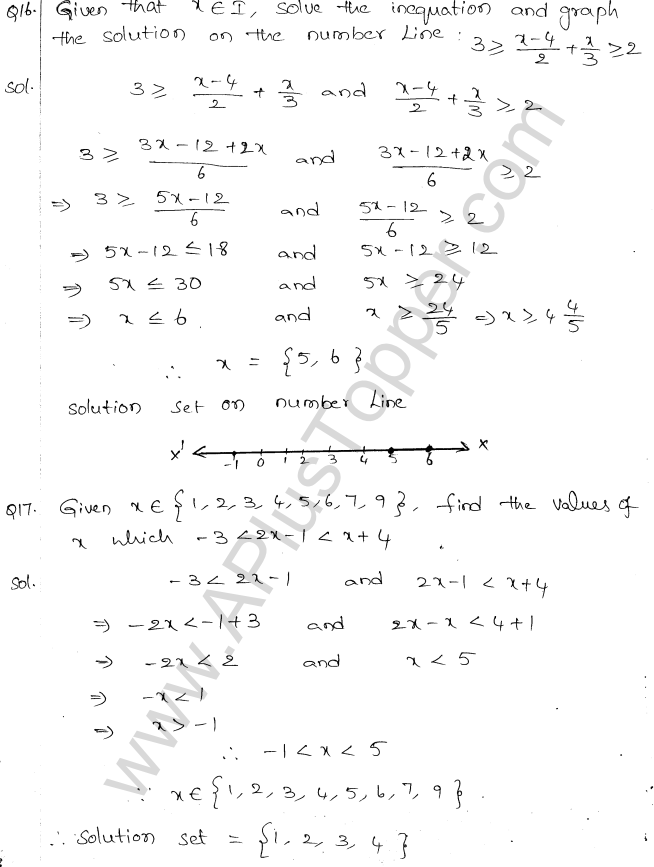 Q16. Given that x ∈ I, solve the inequation and graph
the solution on the number Line : 3 ≥ (x-4)/2 + x/3 ≥ 2
Sol. 3 ≥ (x-4)/2 + x/3 and (x-4)/2 + x/3 ≥ 2
3 ≥ (3x-12+2x)/6 and (3x-12+2x)/6 ≥ 2
⇒ 3 ≥ (5x-12)/6 and (5x-12)/6 ≥ 2
⇒ 5x-12 ≤ 18 and 5x-12 ≥ 12
⇒ 5x ≤ 30 and 5x ≥ 24
⇒ x ≤ 6 and x ≥ 24/5 ⇒ x ≥ 4 4/5
∴ x = {5, 6}
Solution set on number Line
x' -1 0 1 2 3 4 5 6 x
Q17. Given x ∈ {1, 2, 3, 4, 5, 6, 7, 9}, find the values of
x which -3 < 2x-1 < x+4.
Sol. -3 < 2x-1 and 2x-1 < x+4
⇒ -2x < -1+3 and 2x-x < 4+1
⇒ -2x < 2 and x < 5
⇒ -x < 1
⇒ x > -1
∴ -1 < x < 5
∵ x ∈ {1, 2, 3, 4, 5, 6, 7, 9}.
∴ Solution set = {1, 2, 3, 4}
www.APlusTopper.com